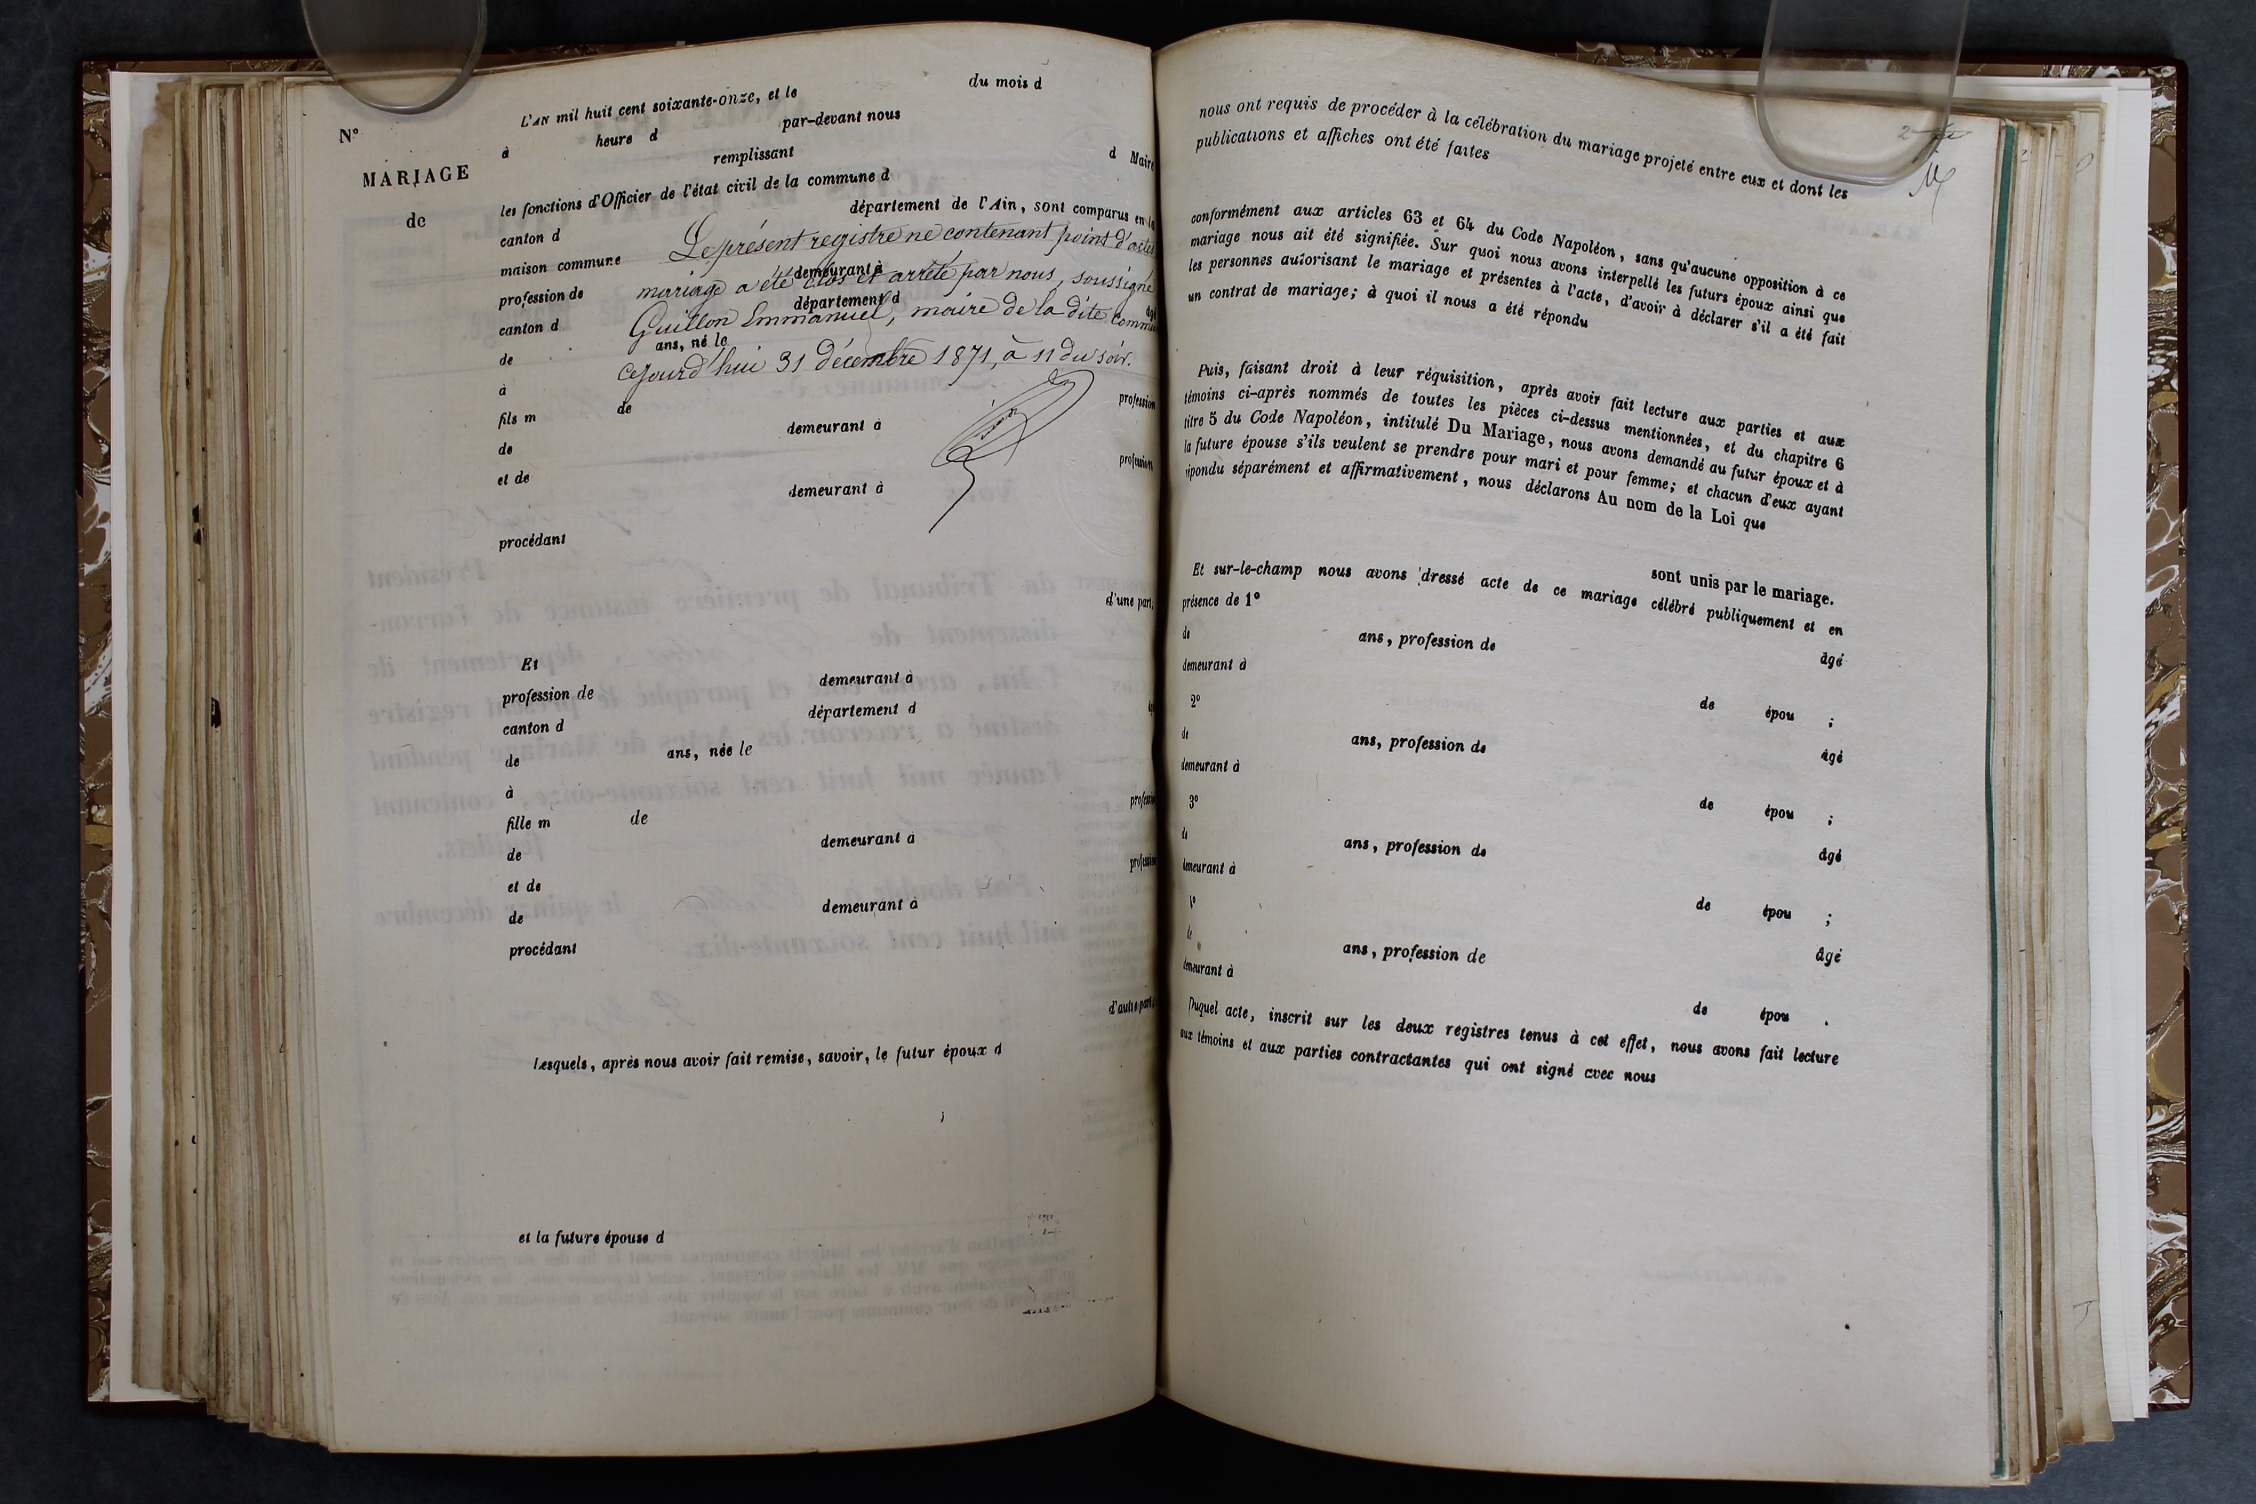 L'AN mil huit cent soixante-onze, et le du mois d
N° à heure d par-devant nous
remplissant d Maire
MARIAGE les fonctions d'Officier de l'état civil de la commune d
de canton d département de l'Ain, sont comparus en la
maison commune Le présent registre ne contenant point d'actes
profession de demeurant à
mariage a été clos et arrêté par nous, soussigné
canton d département d âgé
Guillon Emmanuel, maire de la dite commune
de ans, né le
cejourd'hui 31 décembre 1871, à 11 du soir.
à
fils m de profession
de demeurant à
et de profession
demeurant à
procédant
d'une part;
Et
profession de demeurant à
canton d département d
de ans, née le
à
fille m de profession
de demeurant à
et de profession
de demeurant à
procédant
d'autre part;
Lesquels, après nous avoir fait remise, savoir, le futur époux d
;
et la future épouse d
nous ont requis de procéder à la célébration du mariage projeté entre eux et dont les
publications et affiches ont été faites
conformément aux articles 63 et 64 du Code Napoléon, sans qu'aucune opposition à ce
mariage nous ait été signifiée. Sur quoi nous avons interpellé les futurs époux ainsi que
les personnes autorisant le mariage et présentes à l'acte, d'avoir à déclarer s'il a été fait
un contrat de mariage; à quoi il nous a été répondu
Puis, faisant droit à leur réquisition, après avoir fait lecture aux parties et aux
témoins ci-après nommés de toutes les pièces ci-dessus mentionnées, et du chapitre 6
titre 5 du Code Napoléon, intitulé Du Mariage, nous avons demandé au futur époux et à
la future épouse s'ils veulent se prendre pour mari et pour femme; et chacun d'eux ayant
répondu séparément et affirmativement, nous déclarons Au nom de la Loi que
sont unis par le mariage.
Et sur-le-champ nous avons dressé acte de ce mariage célébré publiquement et en
présence de 1°
de ans, profession de âgé
demeurant à
2° de épou ;
de ans, profession de âgé
demeurant à
3° de épou ;
de ans, profession de âgé
demeurant à
de épou ;
de ans, profession de âgé
demeurant à
de épou .
Duquel acte, inscrit sur les deux registres tenus à cet effet, nous avons fait lecture
aux témoins et aux parties contractantes qui ont signé avec nous